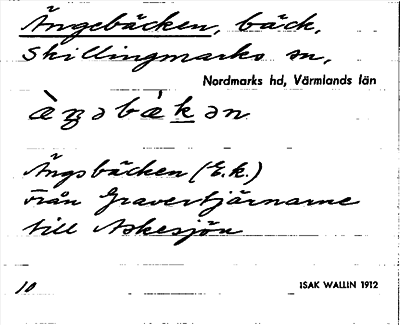 Ängebäcken, bäck,
Skillingmarks sn,
Nordmarks hd, Värmlands län
Ängsbäcken (E.k.)
Från Gravertjärnarne
till Askesjön
10
ISAK WALLIN 1912